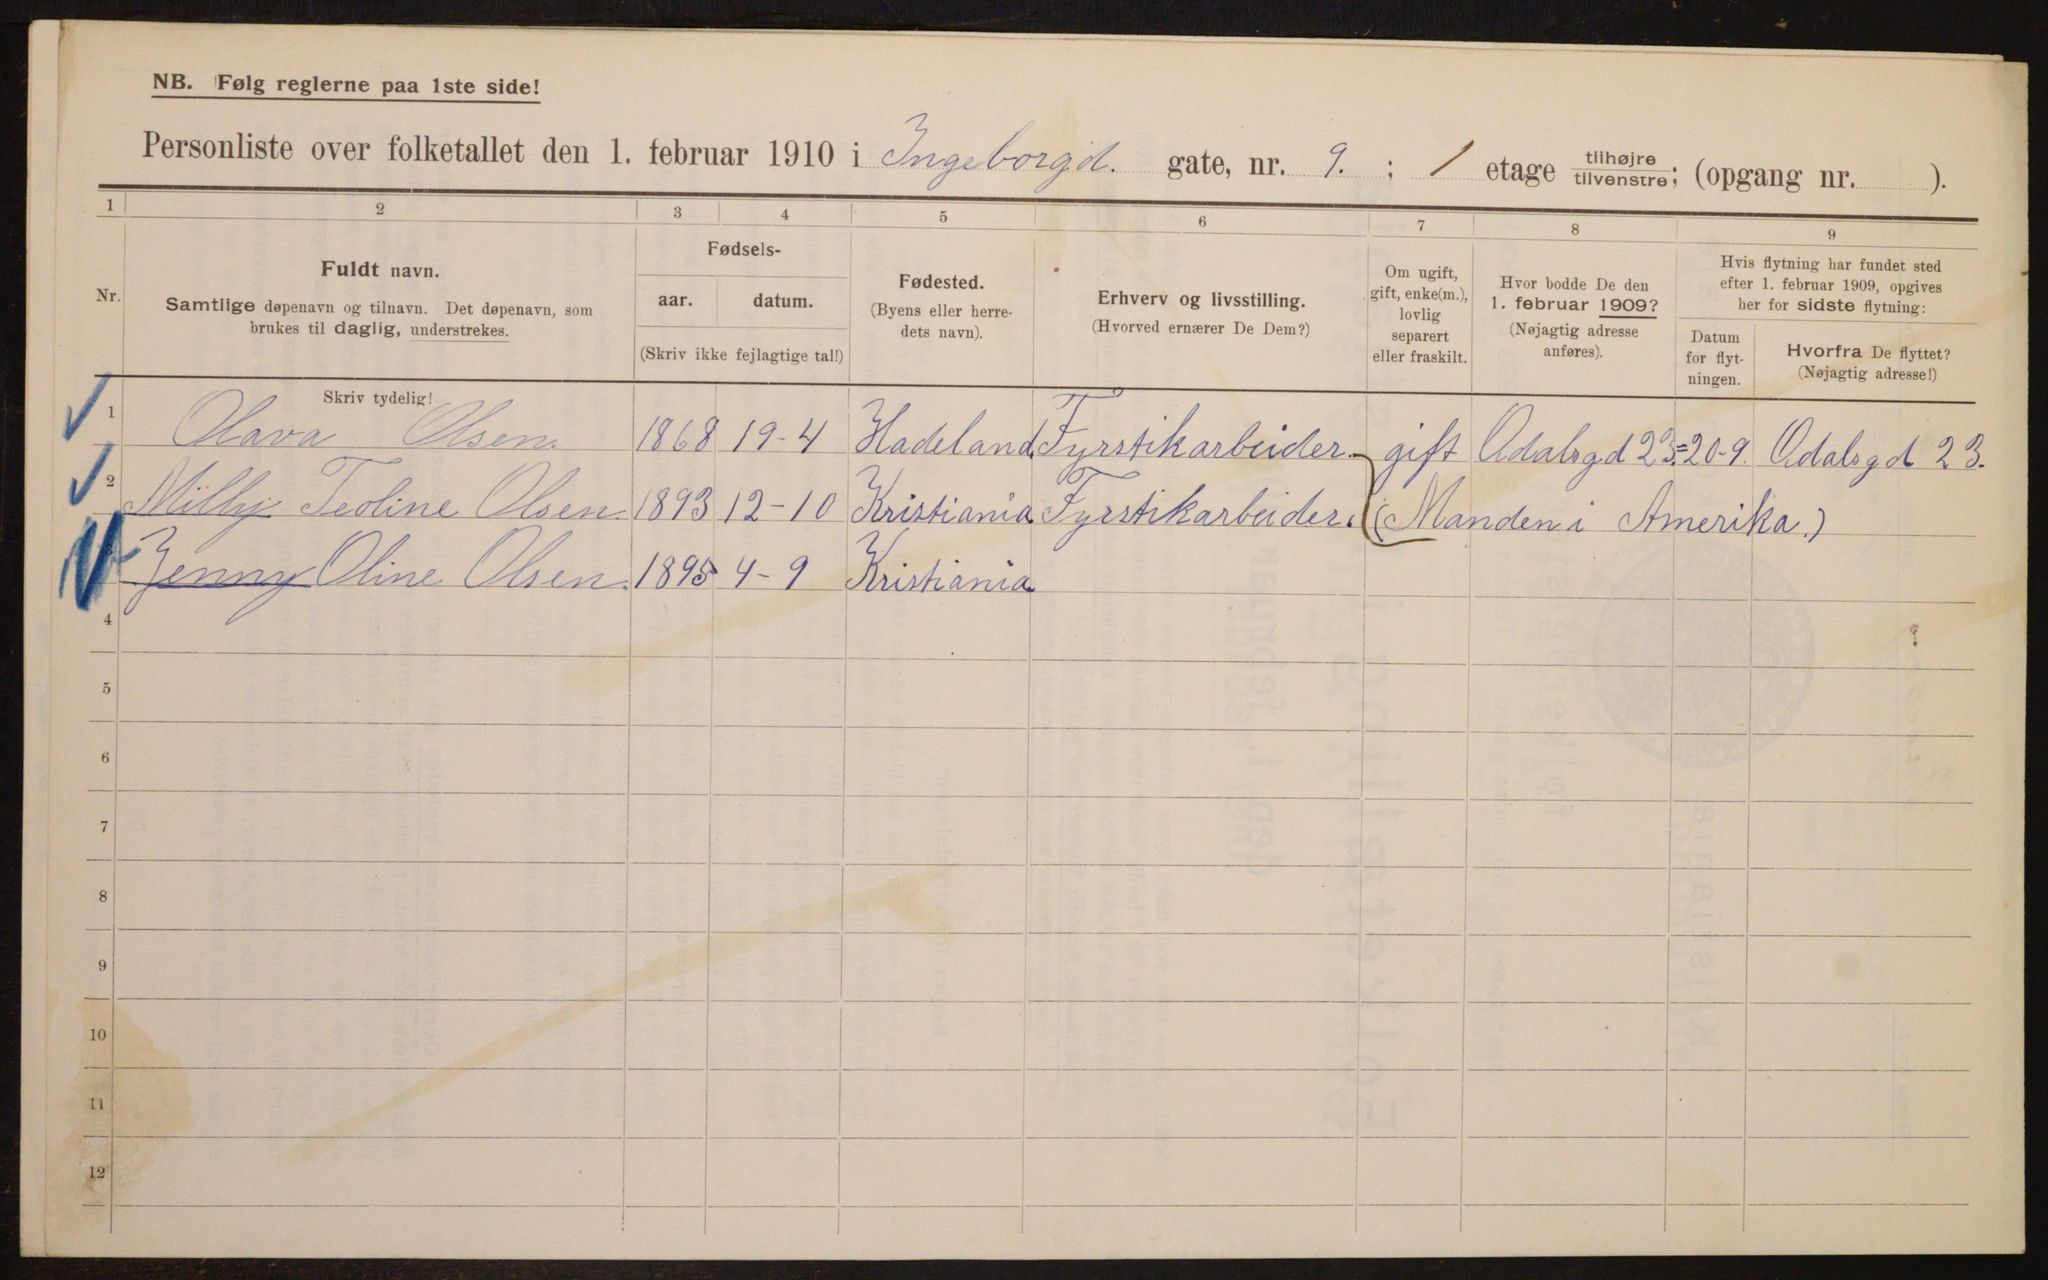 NB. Følg reglerne paa 1ste side!
Personliste over folketallet den 1. februar 1910 i Ingeborgd. gate, nr. 9. ; 1 etage tilhøjre tilvenstre; (opgang nr. ).
1 2 3 4 5 6 7 8 9
Nr.
Fuldt navn.
Samtlige døpenavn og tilnavn. Det døpenavn, som
brukes til daglig, understrekes.
Fødsels-
aar. datum.
(Skriv ikke fejlagtige tal!)
Fødested.
(Byens eller herre-
dets navn).
Erhverv og livsstilling.
(Hvorved ernærer De Dem?)
Om ugift,
gift, enke(m.),
lovlig
separert
eller fraskilt.
Hvor bodde De den
1. februar 1909?
(Nøjagtig adresse
anføres).
Hvis flytning har fundet sted
efter 1. februar 1909, opgives
her for sidste flytning:
Datum
for flyt-
ningen.
Hvorfra De flyttet?
(Nøjagtig adresse!)
Skriv tydelig!
1 Olava Olsen. 1868 19-4 Hadeland. Fyrstikarbeider. gift Odalsgd 23. 20-9. Odalsgd 23.
2 Milly Teoline Olsen. 1893 12-10 Kristiania Fyrstikarbeider. (Manden i Amerika.)
3 Jenny Oline Olsen. 1895 4-9 Kristiania.
4
5
6
7
8
9
10
11
12